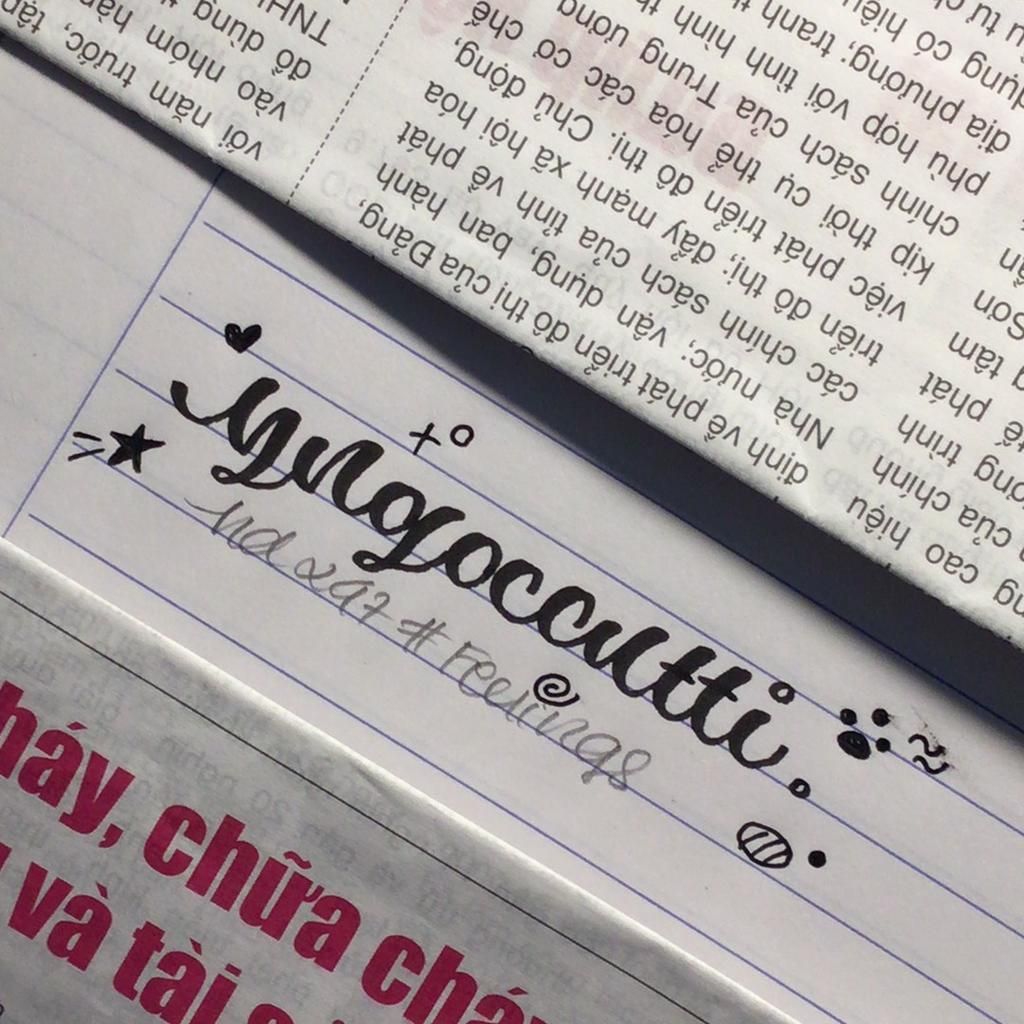 với năm trước,
vào nhóm hàn
đồ dùng
TNHH
định về phát triển đô thị của Đảng,
Nhà nước; vận dụng, ban hành
các chính sách của tỉnh về phát
triển đô thị; đẩy mạnh xã hội hóa
việc phát triển đô thị. Chủ động,
kịp thời cụ thể hóa các cơ chế
chính sách của Trung ương
phù hợp với tình hình th
địa phương, tranh th
dụng có hiệu
cao hiệu
của chính
trong trình
phát
tâm
Sơn
ymgoccutti.
#Feelings
háy, chữa chá
và tài s